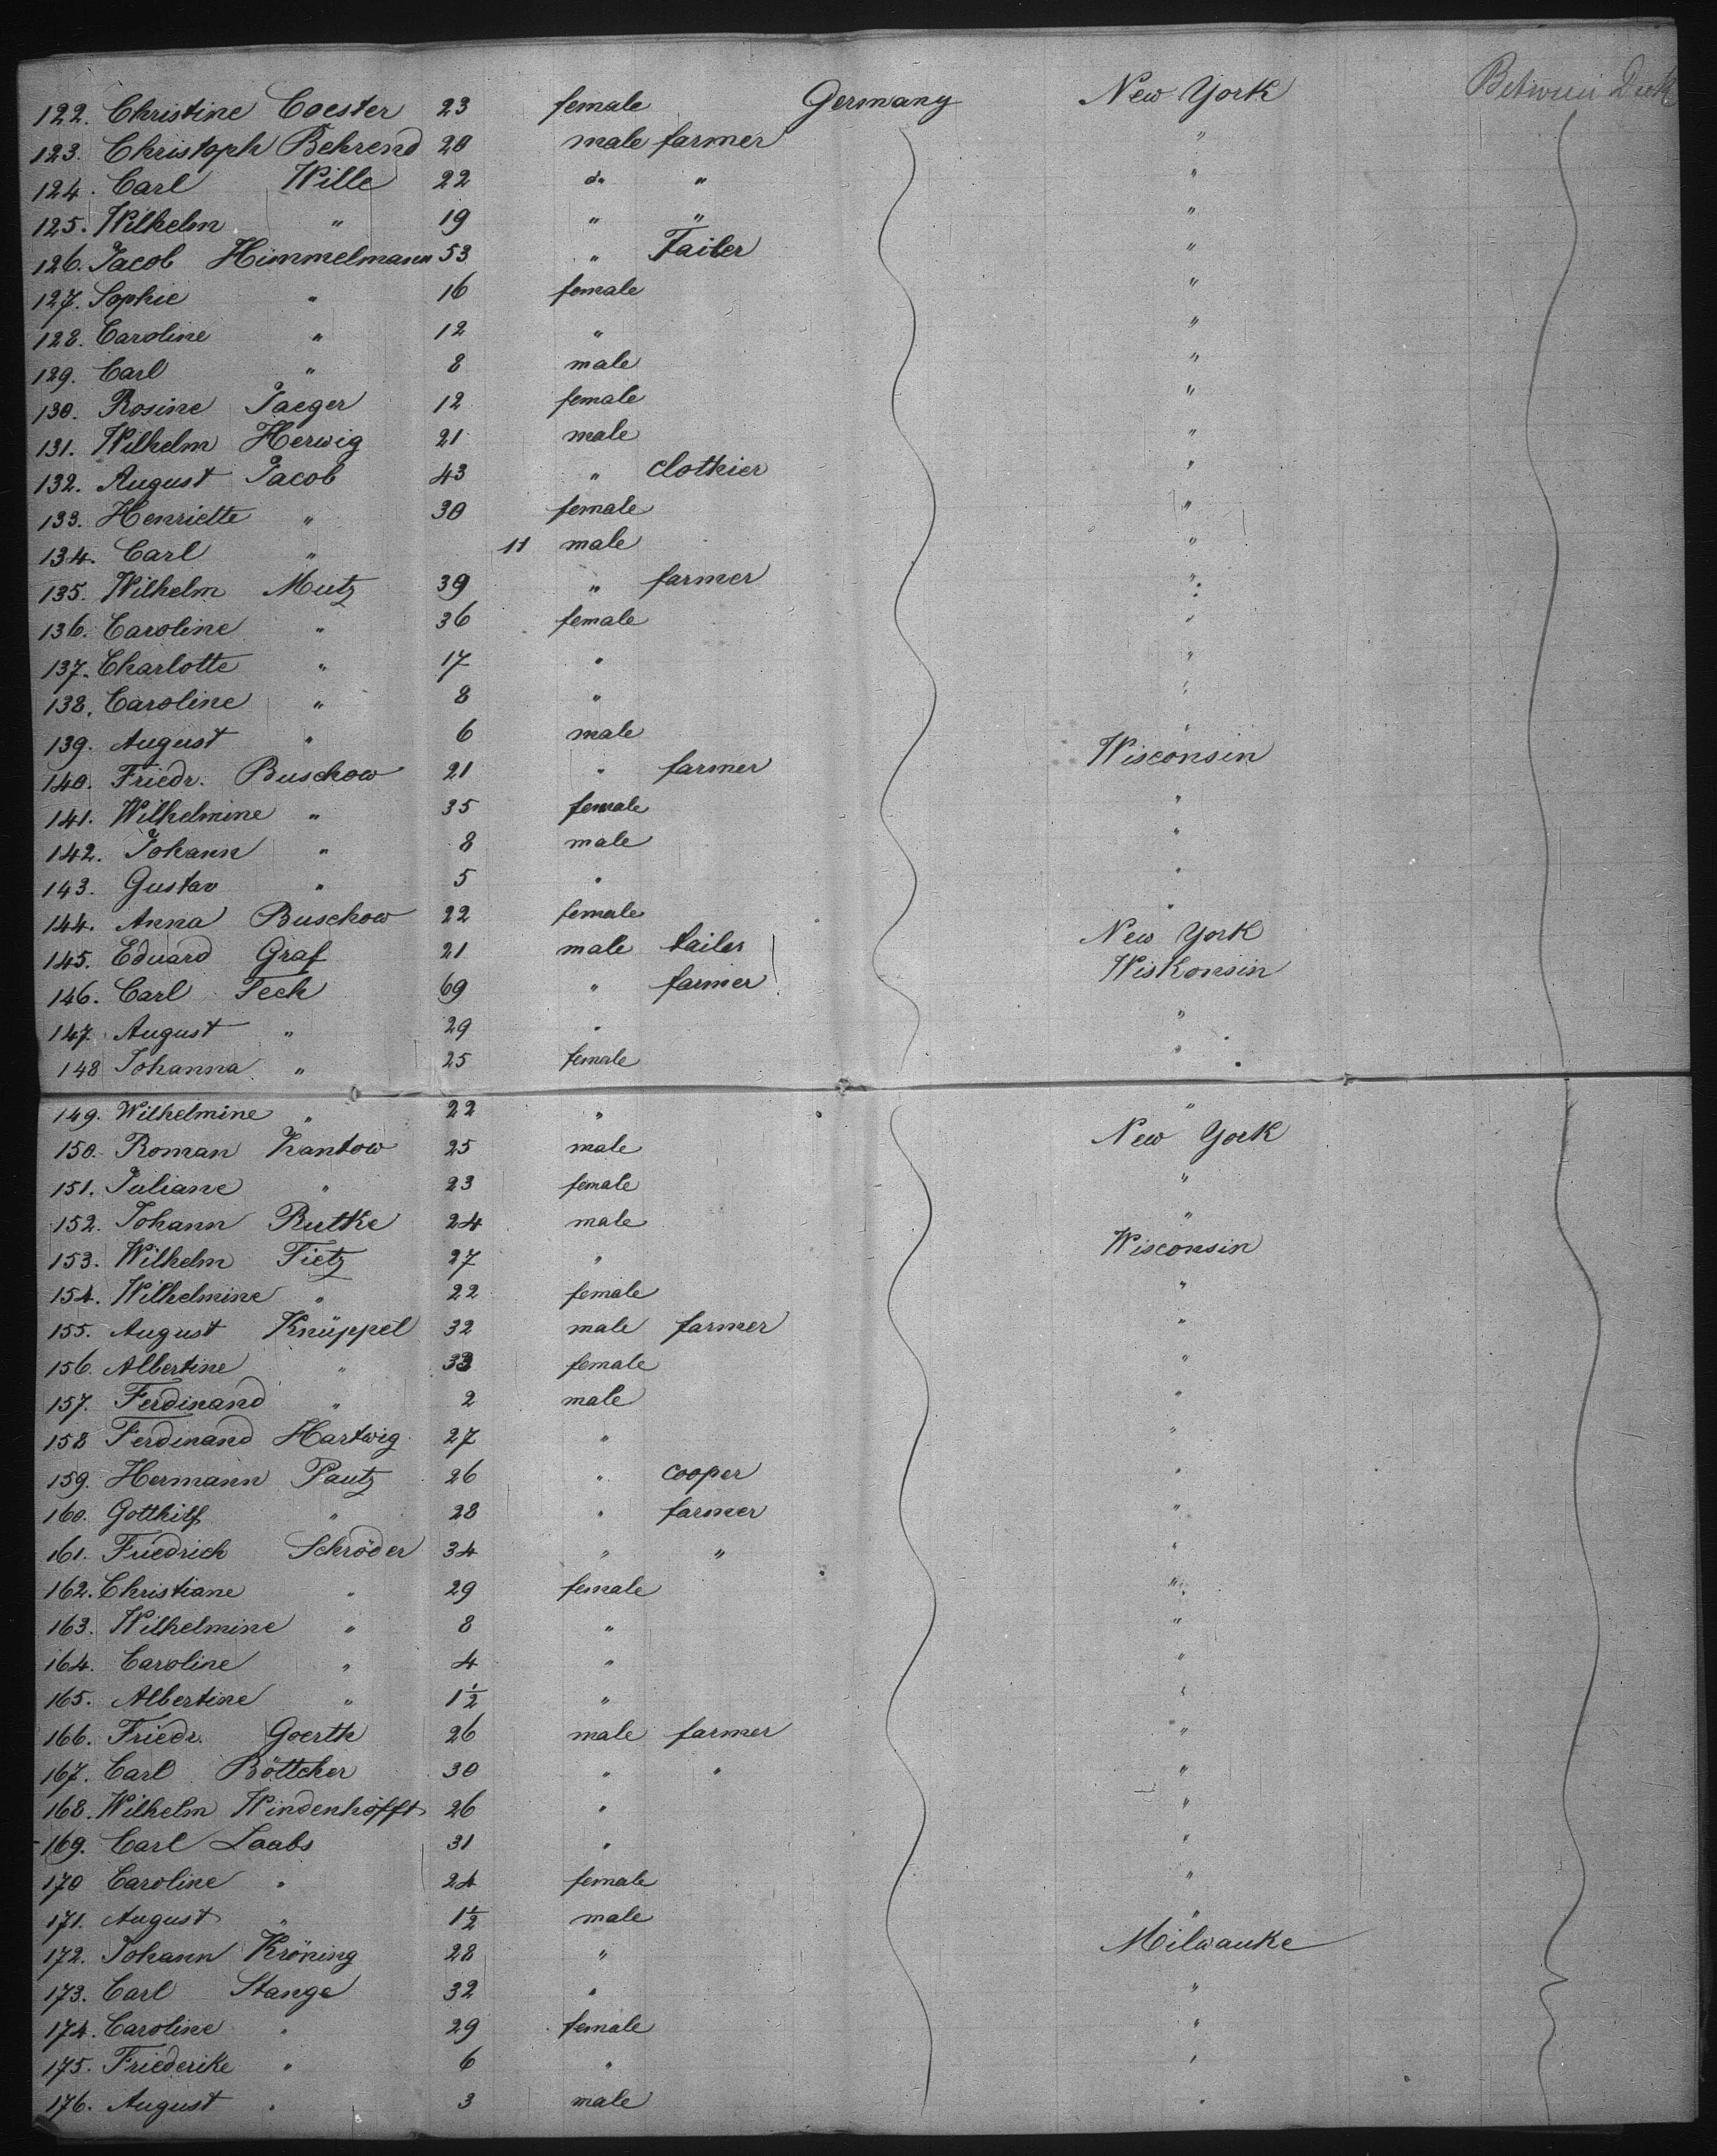 122. Christine Coester 23 female Germany New York Between Deck
123. Christoph Behrend 20 male farmer "
124. Carl Wille 22 do " "
125. Wilhelm " 19 " " "
126. Jacob Himmelmann 53 " Tailer "
127. Sophie " 16 female "
128. Caroline " 12 " "
129. Carl " 8 male "
130. Rosine Jaeger 12 female "
131. Wilhelm Herwig 21 male "
132. August Jacob 43 " clothier "
133. Henriette " 30 female "
134. Carl " 11 male "
135. Wilhelm Mutz 39 " farmer "
136. Caroline " 36 female "
137. Charlotte " 17 " "
138. Caroline " 8 " "
139. August " 6 male "
140. Friedr. Buschow 21 " farmer Wisconsin
141. Wilhelmine " 35 female "
142. Johann " 8 male "
143. Gustav " 5 " "
144. Anna Buschow 22 female "
145. Eduard Graf 21 male tailer New York
146. Carl Tech 69 " farmer Wiskonsin
147. August " 29 " "
148 Johanna " 25 female "
149. Wilhelmine " 22 " "
150. Roman Kantow 25 male New York
151. Juliane " 23 female "
152. Johann Rutke 24 male "
153. Wilhelm Tietz 27 " Wisconsin
154. Wilhelmine " 22 female "
155. August Knüppel 32 male farmer "
156. Albertine " 33 female "
157. Ferdinand " 2 male "
158 Ferdinand Hartwig 27 " "
159. Hermann Pautz 26 " cooper "
160. Gotthilf " 28 " farmer "
161. Friedrich Schröder 34 " " "
162. Christiane " 29 female "
163. Wilhelmine " 8 " "
164. Caroline " 4 " "
165. Albertine " 1½ " "
166. Friedr. Goerth 26 male farmer "
167. Carl Böttcher 30 " " "
168. Wilhelm Windenhöfft 26 " "
169. Carl Laabs 31 " "
170 Caroline " 24 female "
171. August " 1½ male "
172. Johann Kröning 28 " Milwauke
173. Carl Stange 32 " "
174. Caroline " 29 female "
175. Friederike " 6 " "
176. August " 3 male "